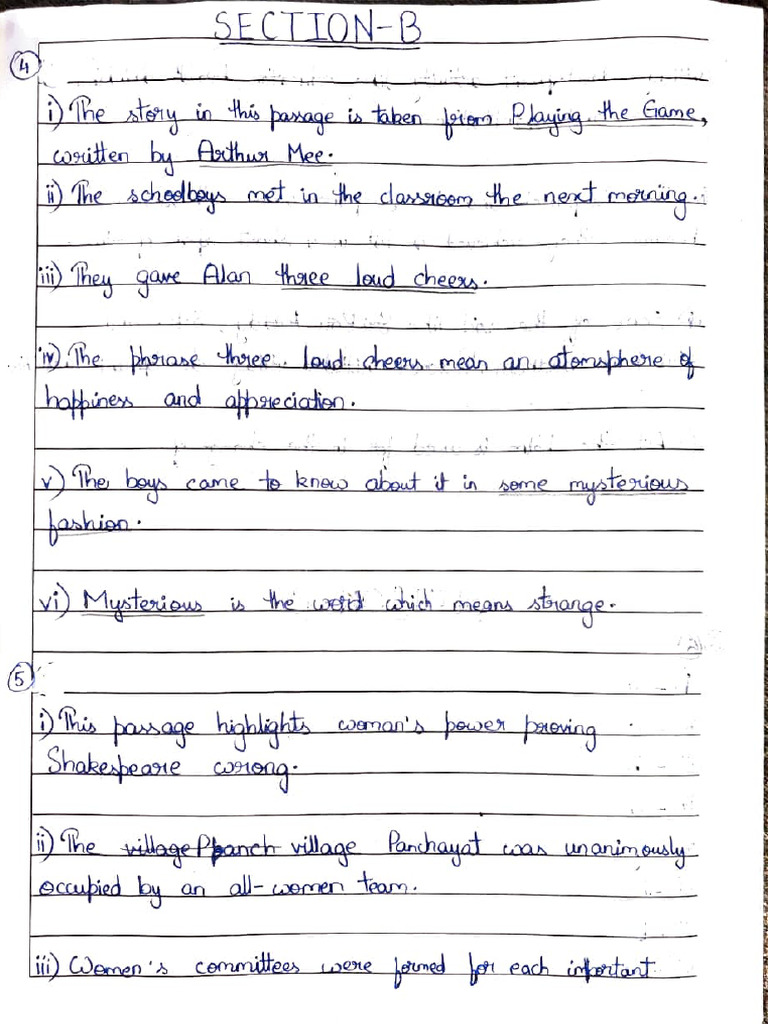 SECTION-B
4
i) The story in this passage is taken from Playing the Game,
written by Arthur Mee.
ii) The schoolboys met in the classroom the next morning.
iii) They gave Alan three loud cheers.
iv) The phrase three loud cheers mean an atomsphere of
happiness and appreciation.
v) The boys came to know about it in some mysterious
fashion.
vi) Mysterious is the word which means strange.
5
i) This passage highlights woman's power proving
Shakespeare wrong.
ii) The village Ppanch village Panchayat was unanimously
occupied by an all-women team.
iii) Women's committees were formed for each important